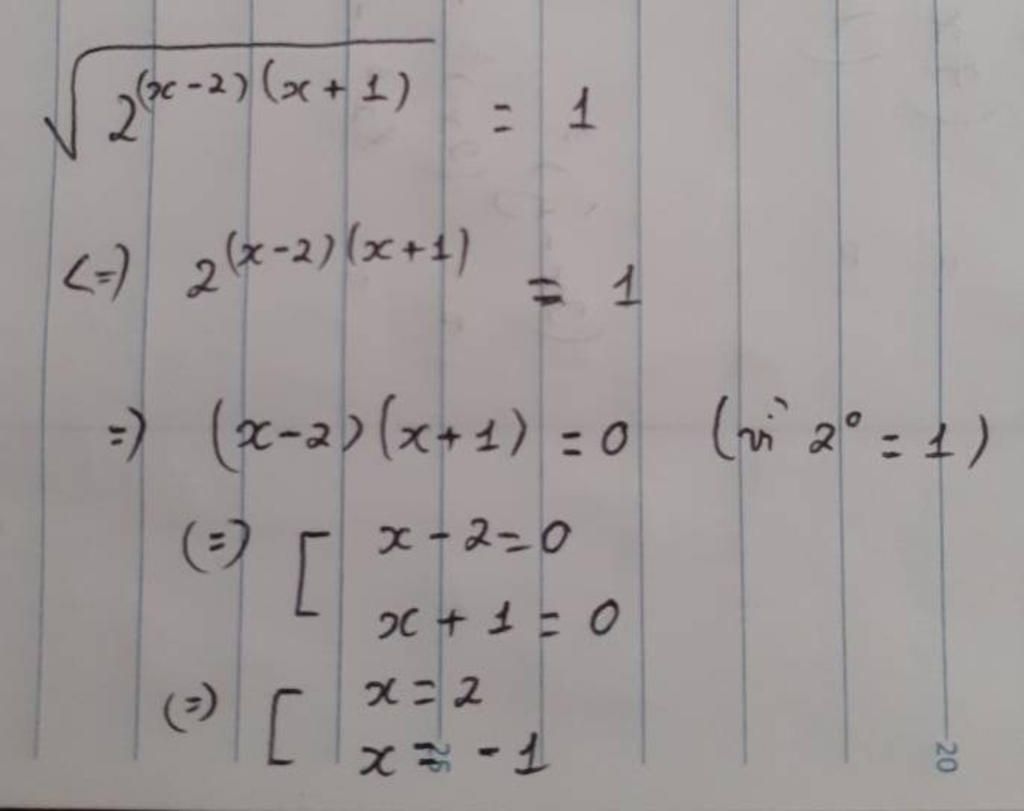 √(2^((x-2)(x+1))) = 1
<=> 2^((x-2)(x+1)) = 1
=> (x-2)(x+1) = 0 (vì 2⁰ = 1)
(=) [ x - 2 = 0
x + 1 = 0
(=) [ x = 2
x = -1
26
20